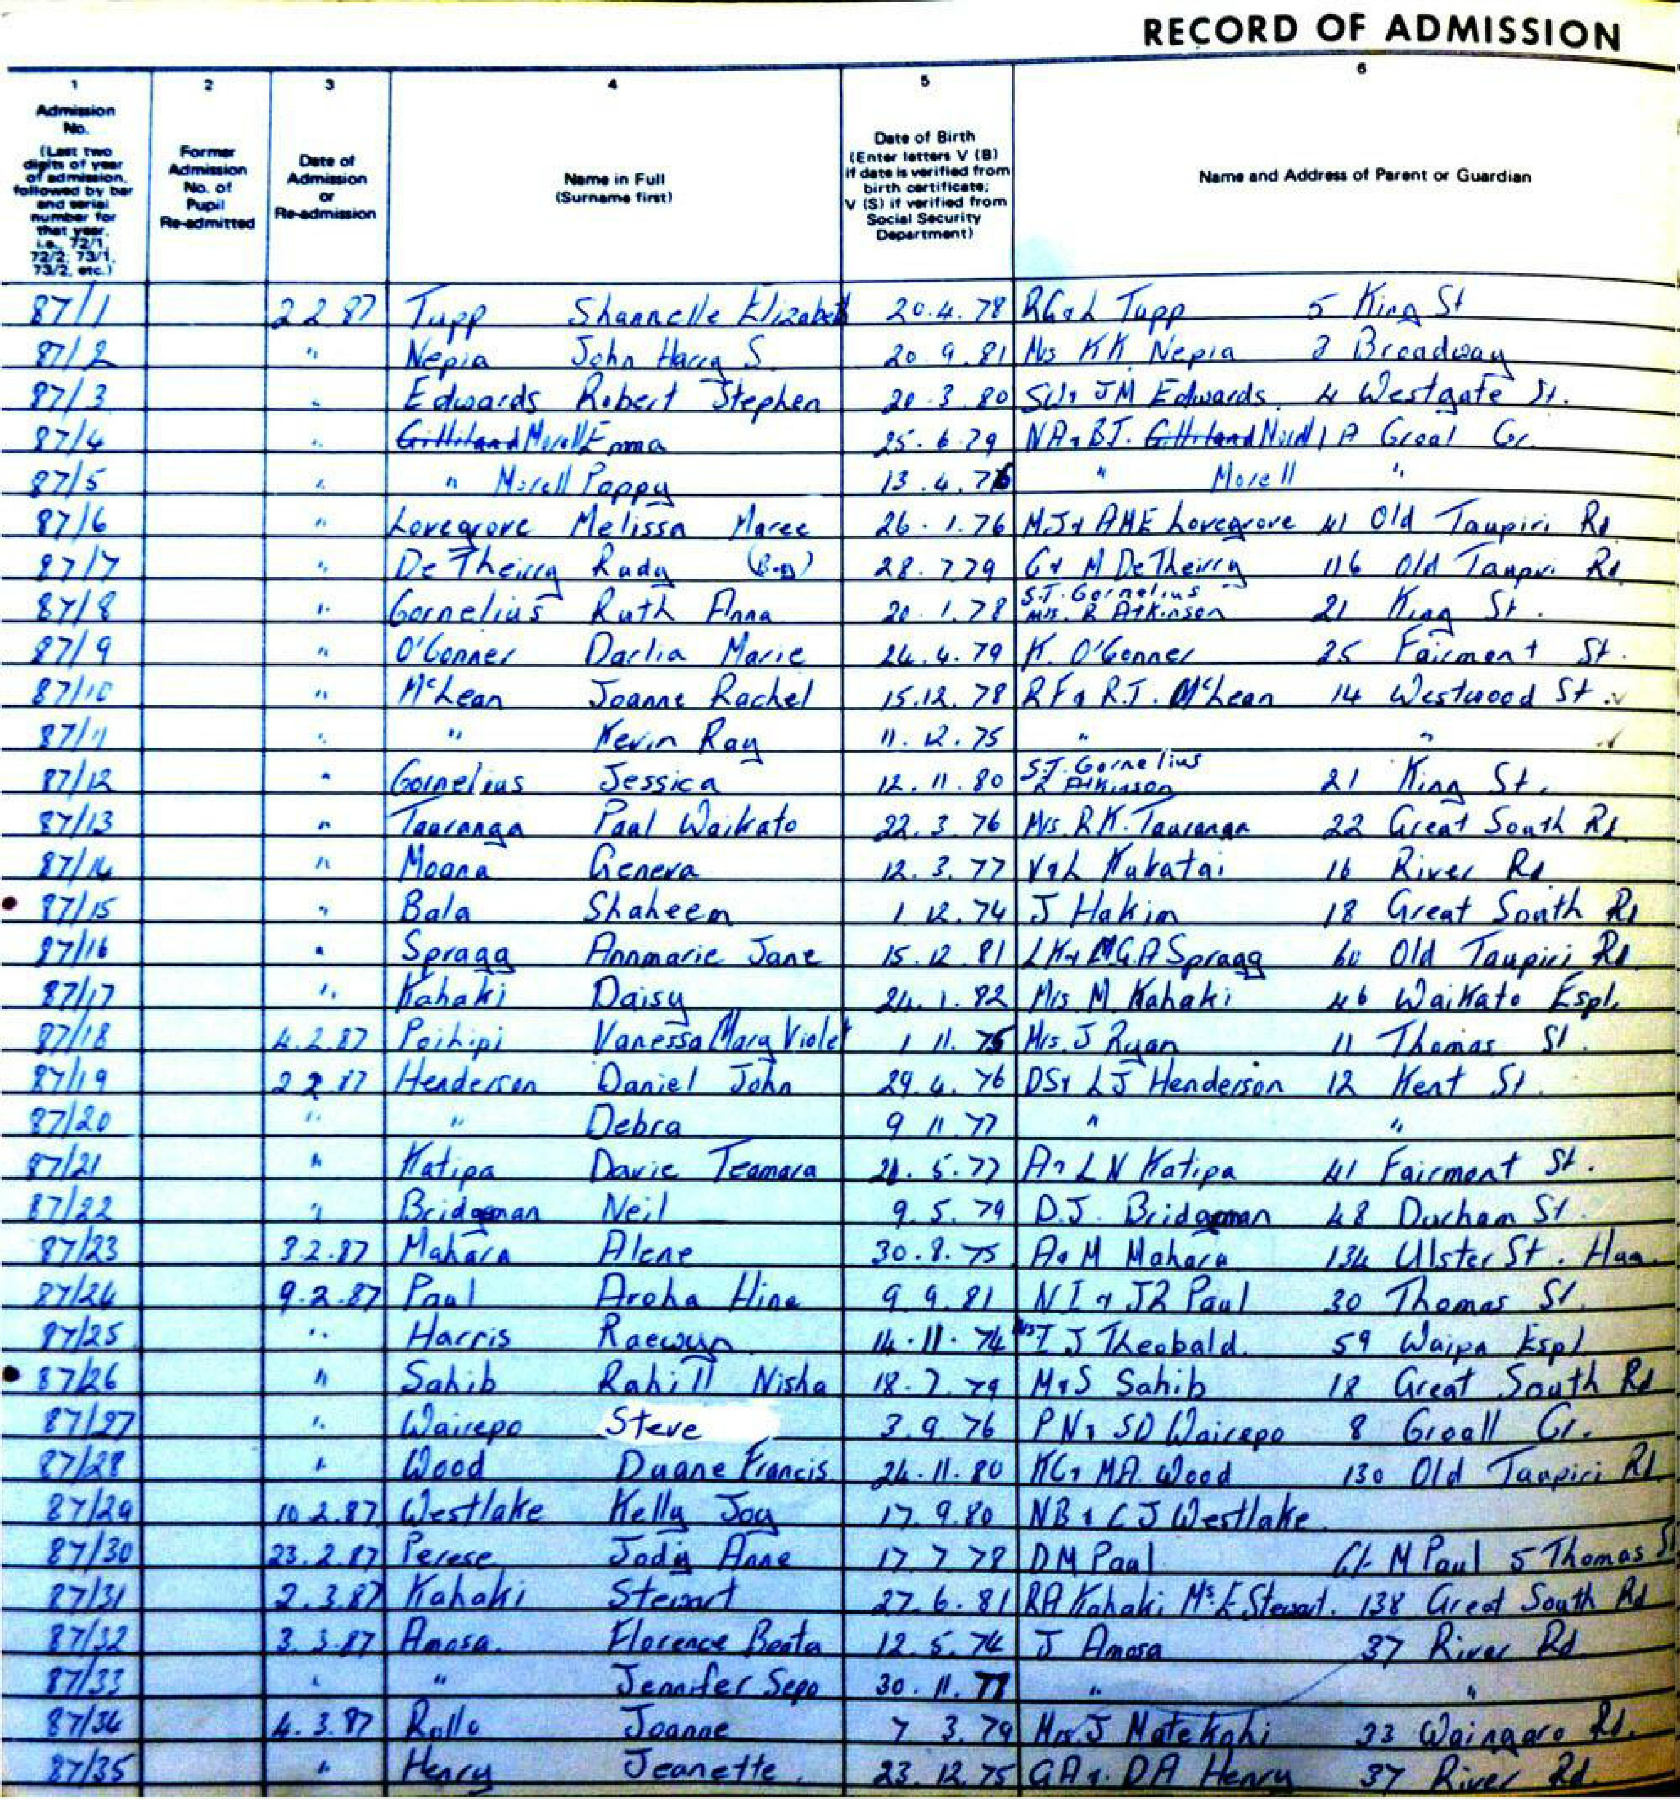 RECORD OF ADMISSION
1 2 3 4 5 6
Admission No. (Last two digits of year of admission, followed by bar and serial number for that year, i.e., 72/1, 72/2, 73/1, 73/2, etc.)
Former Admission No. of Pupil Re-admitted
Date of Admission or Re-admission
Name in Full (Surname first)
Date of Birth (Enter letters V (B) if date is verified from birth certificate; V (S) if verified from Social Security Department)
Name and Address of Parent or Guardian
87/1 2 2 87 Tupp Shannelle Elizabeth 20.4.78 RG & L Tupp 5 King St
87/2 " Nepia John Harry S. 20.9.81 Mrs KK Nepia 2 Broadway
87/3 " Edwards Robert Stephen 20.3.80 SW & JM Edwards 4 Westgate St.
87/4 " Gilliland Morell Emma 25.6.79 NA & BJ. Gilliland Morell 1A Croal Cr.
87/5 " " Morell Poppy 13.4.76 " Morell "
87/6 " Lovegrove Melissa Maree 26.1.76 MJ & AME Lovegrove 41 Old Taupiri Rd
87/7 " De Theirry Rudy (Boy) 28.7.79 G & M De Theirry 116 Old Taupiri Rd
87/8 " Cornelius Ruth Anna 20.1.78 S.J. Cornelius Mrs. R Atkinson 21 King St.
87/9 " O'Conner Darlia Marie 24.4.79 K. O'Conner 25 Fairmont St.
87/10 " McLean Joanne Rachel 15.12.78 RF & R.J. McLean 14 Westwood St.
87/11 " " Kevin Ray 11.12.75 " "
87/12 " Cornelius Jessica 12.11.80 S.J. Cornelius R Atkinson 21 King St.
87/13 " Tauranga Paul Waikato 22.3.76 Mrs. R.K. Tauranga 22 Great South Rd
87/14 " Moana Geneva 12.3.77 V & L Kukutai 16 River Rd
87/15 " Bala Shaheem 1 12.74 J Hakim 18 Great South Rd
87/16 " Spragg Annmarie Jane 15.12.81 LK & MGA Spragg 60 Old Taupiri Rd
87/17 " Kahaki Daisy 24.1.82 Mrs M Kahaki 46 Waikato Espl.
87/18 4.2.87 Poihipi Vanessa Mary Violet 1 11.75 Mrs. J Ryan 11 Thomas St.
87/19 2 2 87 Henderson Daniel John 29.4.76 DS & LJ Henderson 12 Kent St.
87/20 " " Debra 9 11.77 " "
87/21 " Katipa Davie Teamara 21.5.77 A & LN Katipa 41 Fairmont St.
87/22 " Bridgman Neil 9.5.79 D.J. Bridgman 48 Durham St.
87/23 3.2.87 Mahara Alene 30.8.75 A & M Mahara 134 Ulster St. Ham
87/24 9.2.87 Paul Aroha Hine 9 9.81 NI & JR Paul 30 Thomas St.
87/25 " Harris Raewyn 14.11.74 Mrs I J Theobald. 59 Waipa Espl
87/26 " Sahib Rahi Nisha 18.7.79 M & S Sahib 18 Great South Rd
87/27 " Wairepo Steve 3.9.76 PN & SD Wairepo 8 Croall Cr.
87/28 " Wood Duane Francis 24.11.80 KG & MA Wood 130 Old Taupiri Rd
87/29 10.2.87 Westlake Kelly Joy 17.9.80 NB & CJ Westlake
87/30 23.2.87 Perese Jody Anne 17 7 78 DM Paul C/- M Paul 5 Thomas St
87/31 2.3.87 Kahaki Stewart 27.6.81 RA Kahaki Ms E Stewart. 138 Great South Rd
87/32 3.3.87 Amosa Florence Beata 12.5.74 J Amosa 37 River Rd
87/33 " " Jennifer Sepo 30.11.77 " "
87/34 4.3.87 Rollo Joanne 7 3.79 Mrs J Matekohi 33 Waingaro Rd.
87/35 " Henry Jeanette 23.12.75 GA & DA Henry 37 River Rd.